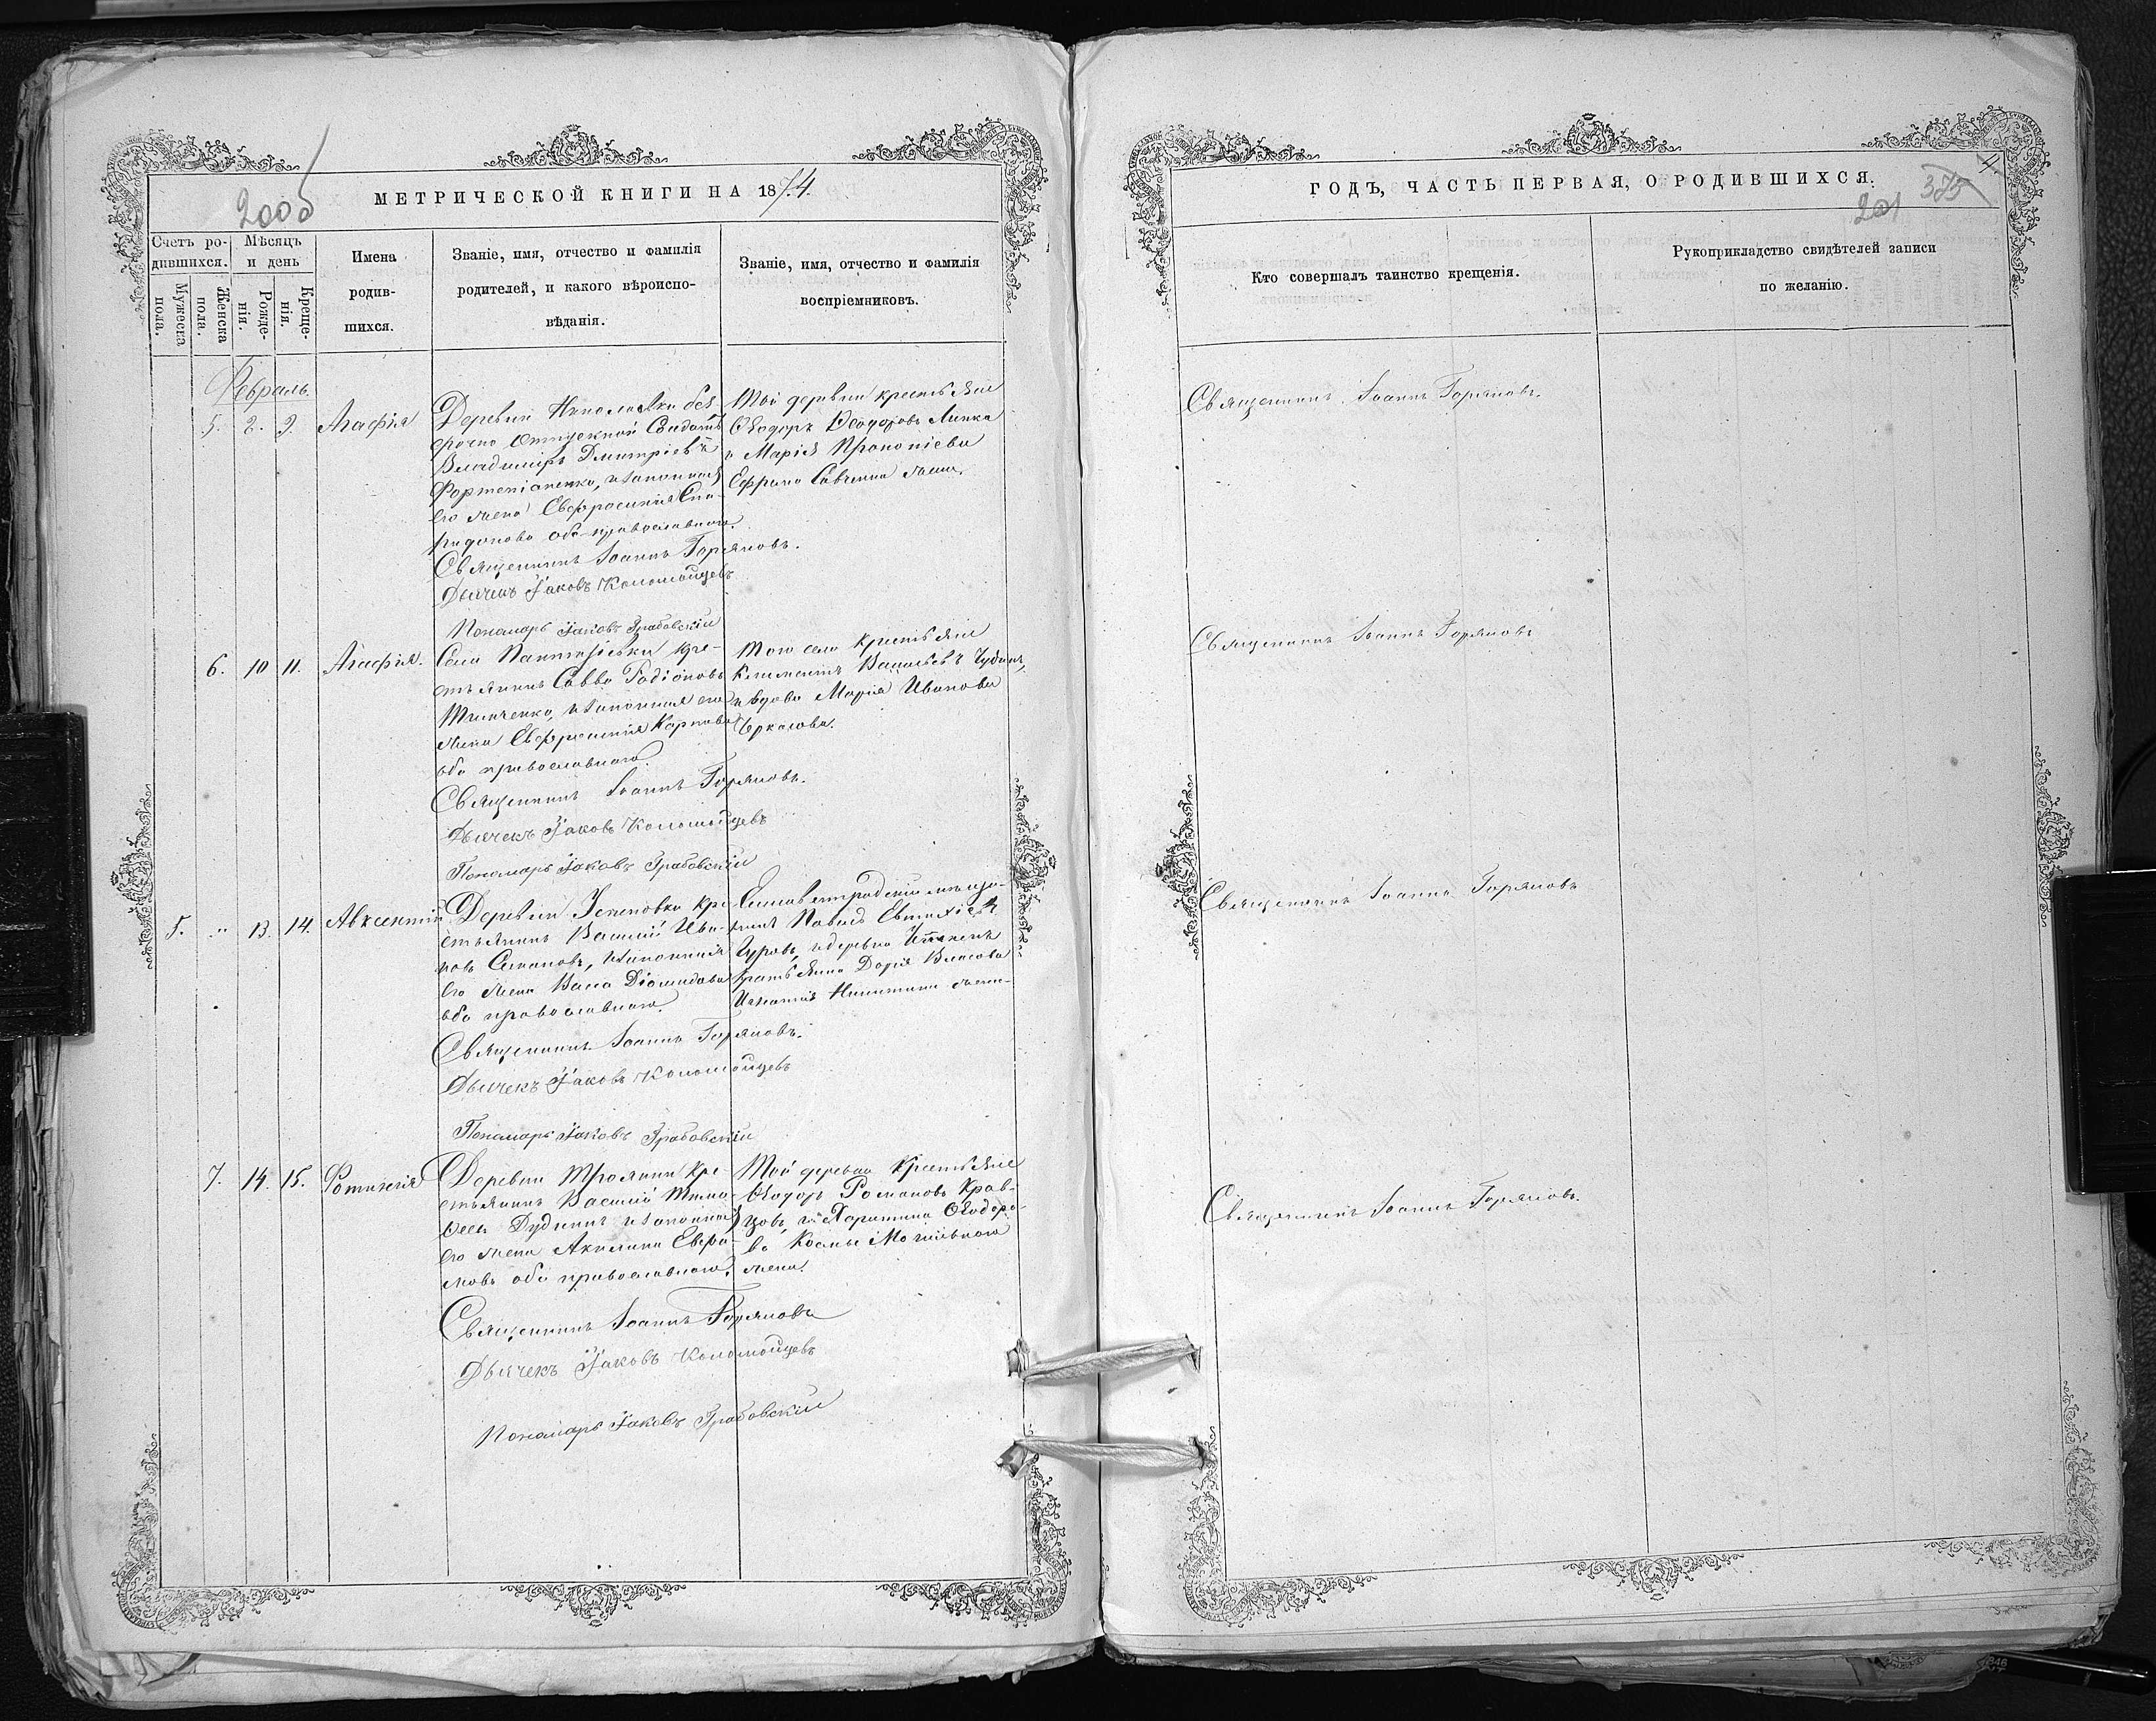 МЕТРИЧЕСКОЙ КНИГИ НА 1874.
200об
Счетъ ро-
дившихся.
Мѣсяцъ
и день
Мужеска
пола.
Женска
пола.
Рожде-
нія.
Креще-
нія.
Имена
родив-
шихся.
Званіе, имя, отчество и фамилія
родителей, и какого вѣроиспо-
вѣданія.
Званіе, имя, отчество и фамилія
воспріемниковъ.
Февраль
5. 2. 9. Агафія
Деревни Николаевки без-
срочно отпускной Солдатъ
Владиміръ Дмитріевъ
Фортепіаненко, и законная
его жена Евфросинія Спи-
ридонова оба православнаго.
Священникъ Іоаннъ Горяновъ.
Дьячекъ Іаковъ Коломойцевъ
Пономарь Іаковъ Грабовскій
Той деревни крестьяне
Ѳеодоръ Ѳеодоровъ Липка
и Марія Прокопіева
Ефрима Савченка жена.
6. 10 11. Агафія.
Села Пантазіевки кре-
стьянинъ Савва Родіоновъ
Ткаченко, и законная его
жена Евфросинія Карпова
оба православнаго.
Священникъ Іоаннъ Горяновъ.
Дьячекъ Іаковъ Коломойцевъ
Пономарь Іаковъ Грабовскій
Того села крестьяне
Климентъ Васильевъ
и вдова Марія Иванова
Черкасова.
5. " 13. 14. Авксентій
Деревни Успеновки кре-
стьянинъ Василій Ива-
новъ Семановъ, и законная
его жена Васса Діомидова
оба православнаго.
Священникъ Іоаннъ Горяновъ.
Дьячекъ Іаковъ Коломойцевъ
Пономарь Іаковъ Грабовскій
Елисаветградскій мѣща-
нинъ Павелъ Евтихіевъ
Гуровъ, и деревни
крестьянка Дарія Власова
Игнатія Никитина жена.
7. 14. 15. Фотинія
Деревни Трояни кре-
стьянинъ Василій Тимо-
ѳеевъ Дудникъ и законная
его жена Акилина Евфи-
мова оба православнаго.
Священникъ Іоаннъ Горяновъ
Дьячекъ Іаковъ Коломойцевъ
Пономарь Іаковъ Грабовскій
Той деревни крестьяне
Ѳеодоръ Романовъ Крав-
цовъ, и Харитина Ѳеодоро-
ва Космы Могильнаго
жена.
ГОДЪ, ЧАСТЬ ПЕРВАЯ, О РОДИВШИХСЯ.
4.
375
201
Кто совершалъ таинство крещенія.
Рукоприкладство свидѣтелей записи
по желанію.
Священникъ Іоаннъ Горяновъ.
Священникъ Іоаннъ Горяновъ
Священникъ Іоаннъ Горяновъ
Священникъ Іоаннъ Горяновъ.